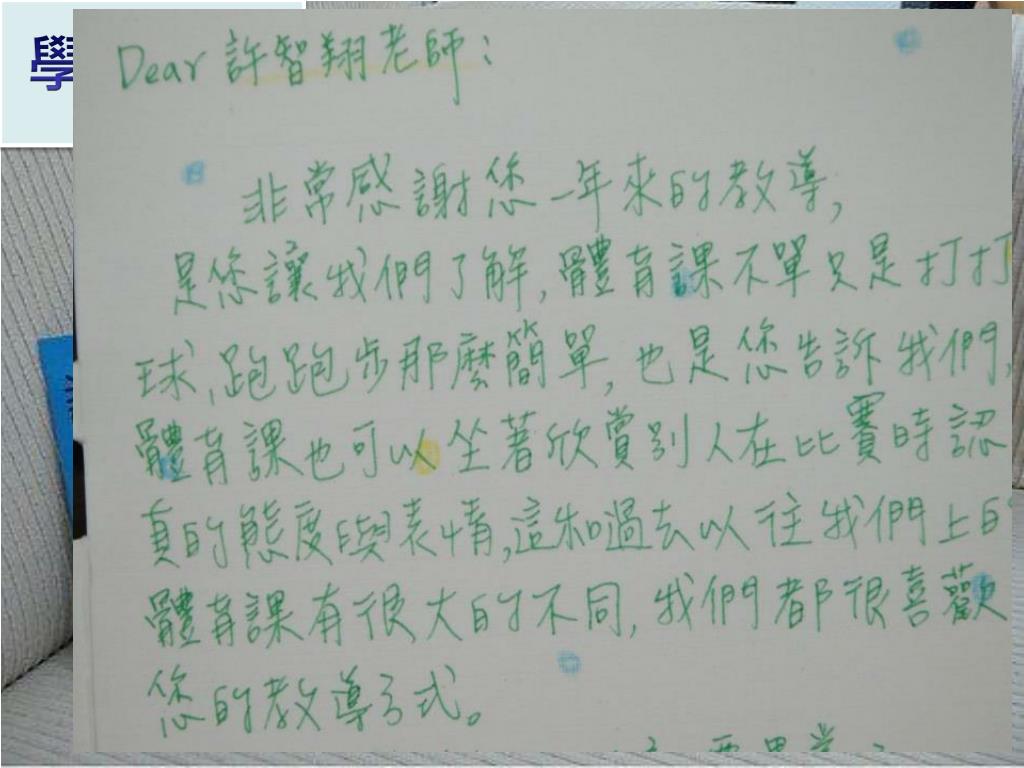 學
Dear 許智翔老師：
非常感謝您一年來的教導，
是您讓我們了解，體育課不單只是打打
球、跑跑步那麼簡單，也是您告訴我們，
體育課也可以坐著欣賞別人在比賽時認
真的態度與表情，這和過去以往我們上的
體育課有很大的不同，我們都很喜歡
您的教導方式。